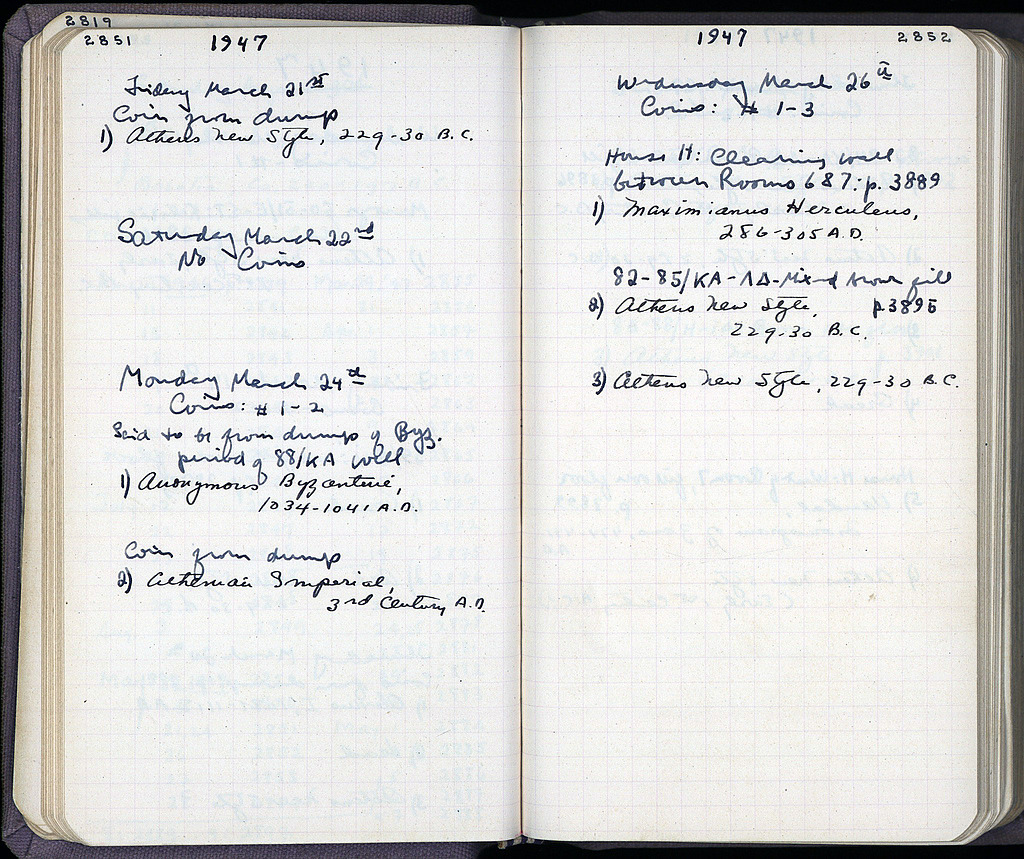 2819
2851
1947
Friday March 21st
Coin from dump
1) Athens New Style, 229-30 B.C.
Saturday March 22nd
No Coins
Monday March 24th
Coins: # 1-2
Said to be from dump of Byz.
period of 88/KA well
1) Anonymous Byzantine,
1034-1041 A.D.
Coin from dump
2) Athenian Imperial,
3rd Century A.D.
1947
2852
Wednesday March 26th
Coins: # 1-3
House H: Cleaning wall
between Rooms 6 & 7: p. 3889
1) Maximianus Herculeus,
286-305 A.D.
82-85/KA-ΛΔ-Mixed brown fill
2) Athens New Style, p. 3895
229-30 B.C.
3) Athens New Style, 229-30 B.C.